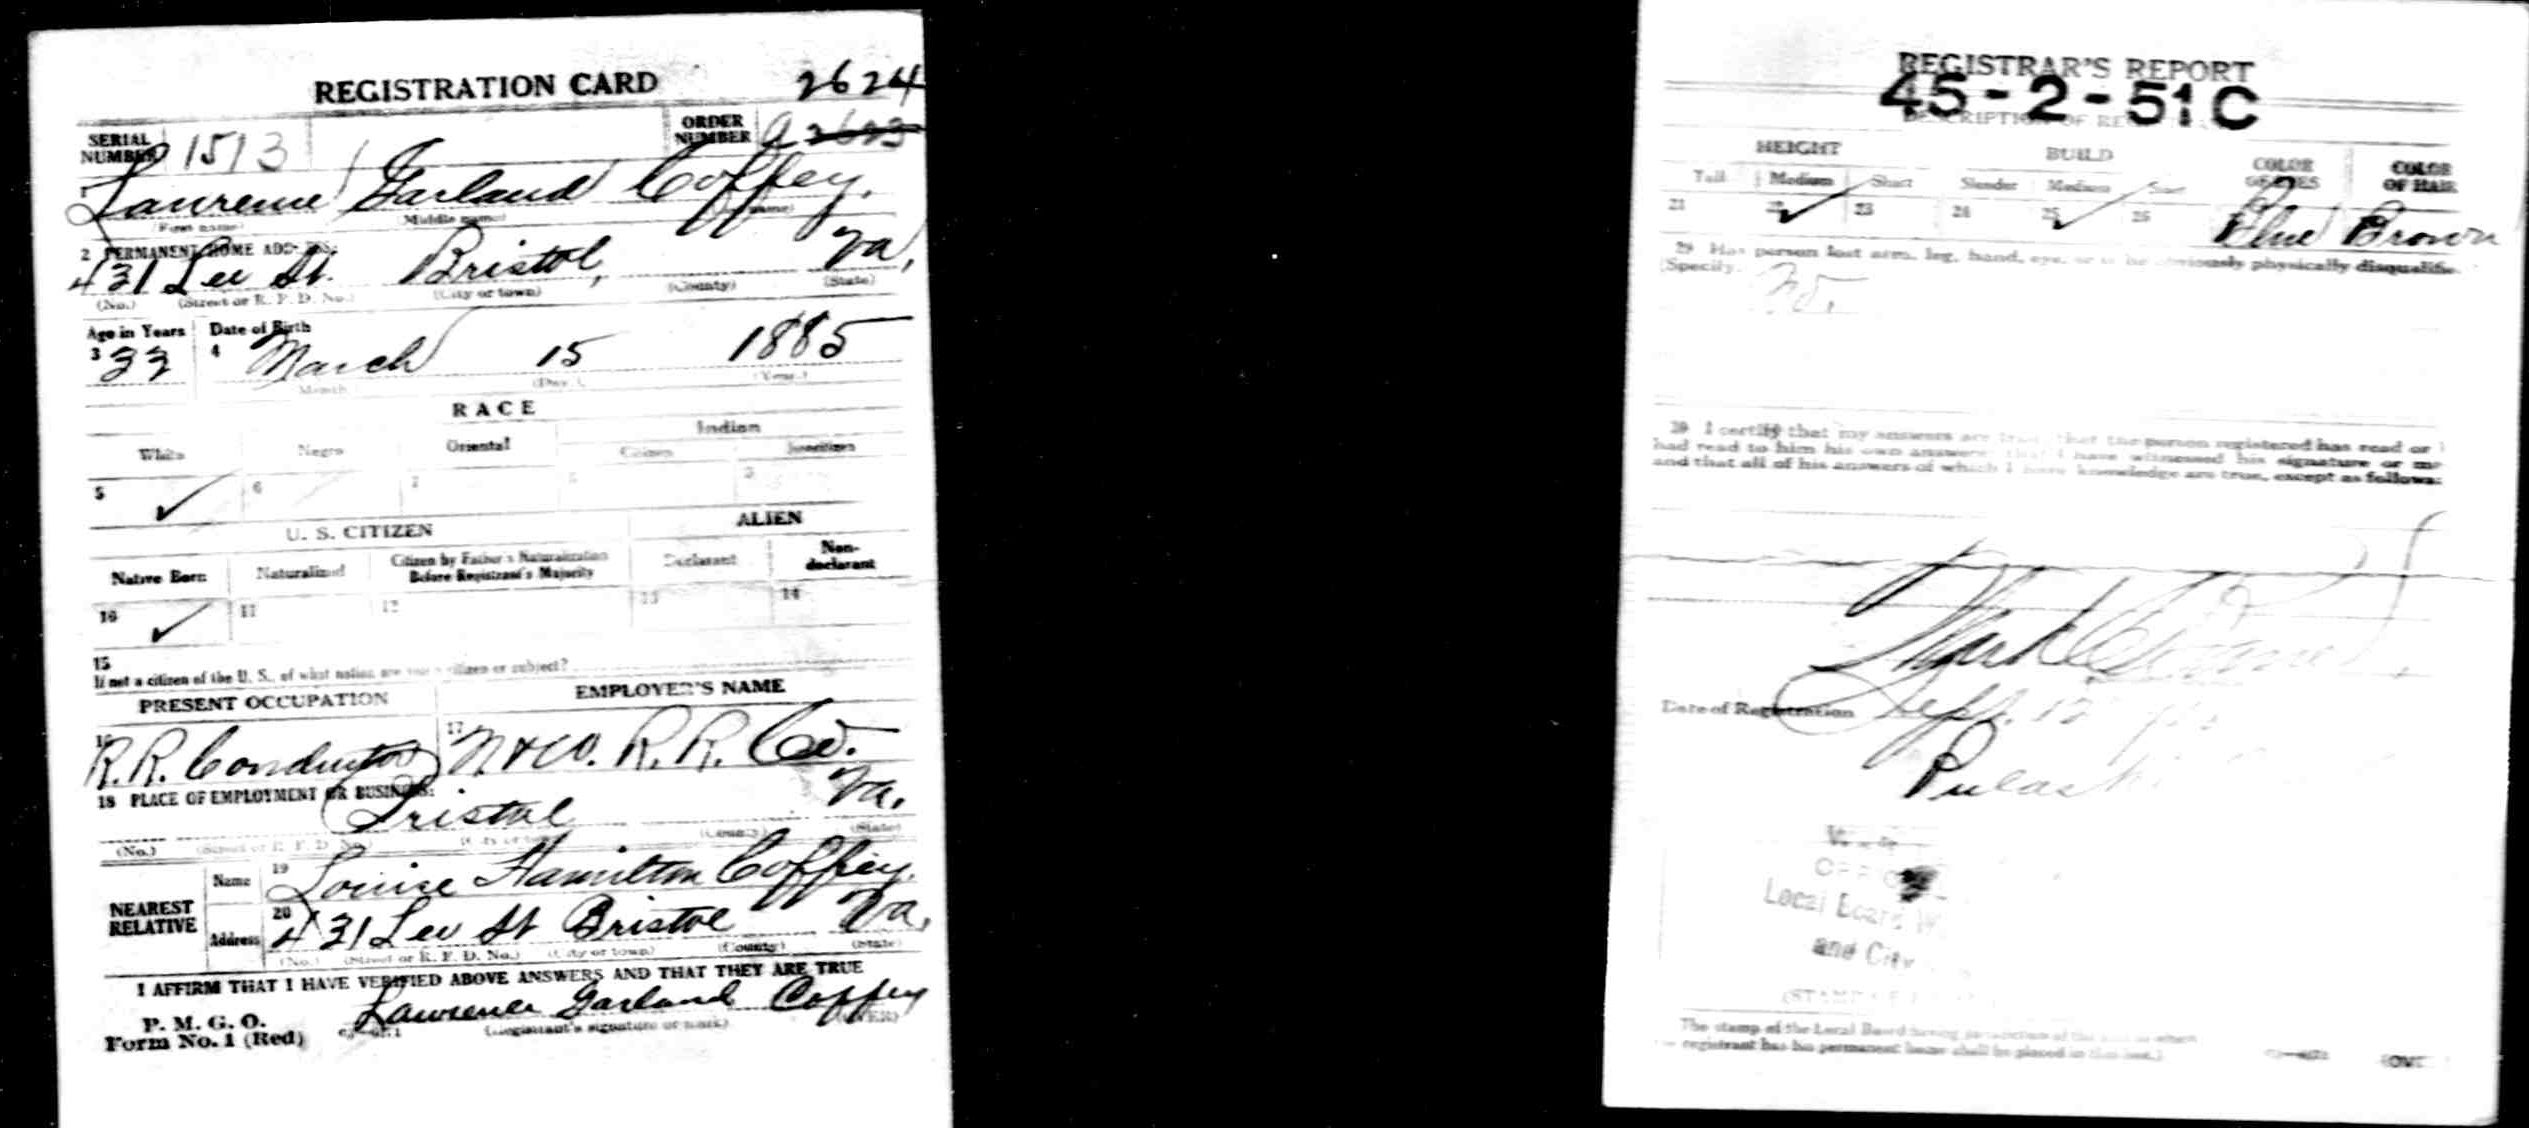 REGISTRATION CARD 2624
SERIAL NUMBER 1513 ORDER NUMBER a 2623
1 Lawrence Garland Coffey,
(First name) (Middle name) name)
2 PERMANENT HOME ADDRESS:
431 Lee St. Bristol, Va,
(No.) (Street or R. F. D. No.) (City or town) (County) (State)
Age in Years Date of Birth
3 33 4 March 15 1885
Month (Day.) (Year.)
RACE
Indian
White Negro Oriental Citizen Noncitizen
5 ✓ 6 7 8 9
U. S. CITIZEN ALIEN
Native Born Naturalized Citizen by Father's Naturalization Before Registrant's Majority Declarant Non-declarant
10 ✓ 11 12 13 14
15
If not a citizen of the U. S., of what nation are you a citizen or subject?
PRESENT OCCUPATION EMPLOYER'S NAME
16 R.R. Conductor 17 N & W. R. R. Co.
18 PLACE OF EMPLOYMENT OR BUSINESS:
Bristol Va.
(No.) (Street or R. F. D. No.) (City or town) (County) (State)
NEAREST RELATIVE
Name 19 Louise Hamilton Coffey.
Address 20 431 Lee St Bristol Va,
(No.) (Street or R. F. D. No.) (City or town) (County) (State)
I AFFIRM THAT I HAVE VERIFIED ABOVE ANSWERS AND THAT THEY ARE TRUE
P. M. G. O.
Form No. 1 (Red)
Lawrence Garland Coffey
(Registrant's signature or mark) (OVER)
REGISTRAR'S REPORT
45-2-51 C
DESCRIPTION OF
HEIGHT BUILD COLOR OF EYES COLOR OF HAIR
Tall Medium Short Slender Medium Stout
21 22 ✓ 23 24 25 ✓ 26 Blue Brown
29 Has person lost arm, leg, hand, eye, or is he obviously physically disqualified
(Specify.) No.
30 I certify that my answers are true, that the person registered has read or
had read to him his own answers; that I have witnessed his signature or
and that all of his answers of which I have knowledge are true, except as follows:
Date of Registration Sept. 12
Pulaski
Local Board
and City
The stamp of the Local Board having jurisdiction of the area in which
registrant has his permanent home shall be placed in this box.)